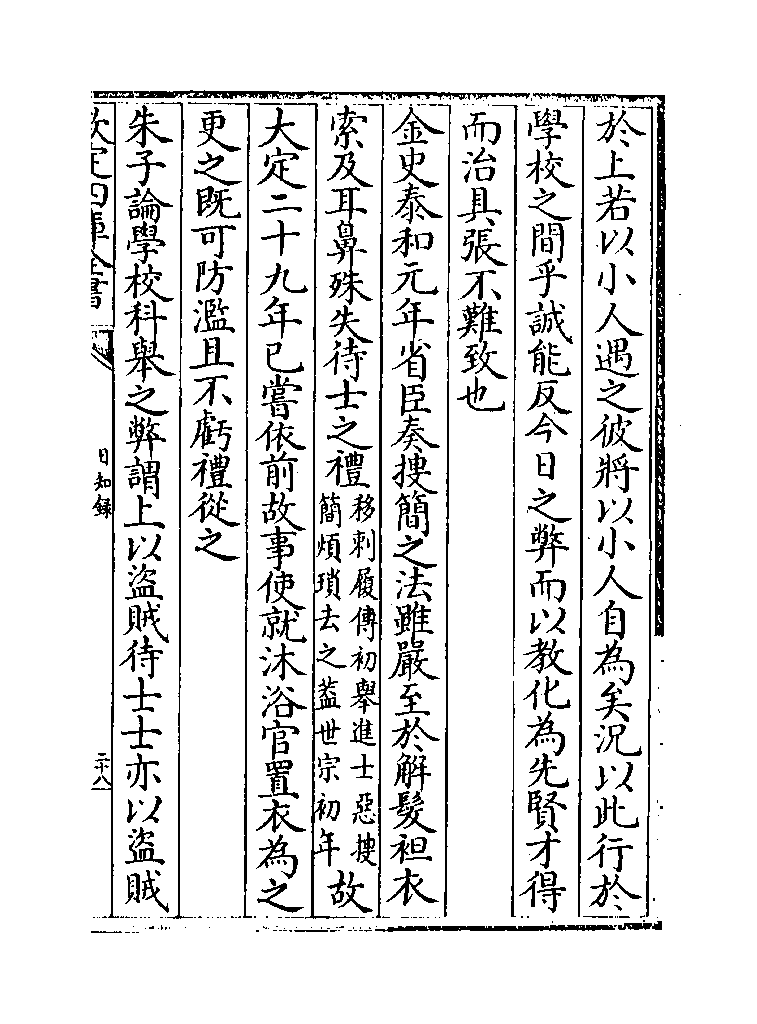 於上若以小人遇之彼將以小人自為矣況以此行於
學校之間乎誠能反今日之弊而以教化為先賢才得
而治具張不難致也
金史泰和元年省臣奏搜簡之法雖嚴至於解髮袒衣
索及耳鼻殊失待士之禮
移剌履傳初舉進士惡搜
簡煩瑣去之蓋世宗初年
故
大定二十九年已嘗依前故事使就沐浴官置衣為之
更之既可防濫且不虧禮從之
朱子論學校科舉之弊謂上以盜賊待士士亦以盜賊
欽定四庫全書
日知錄
二十八